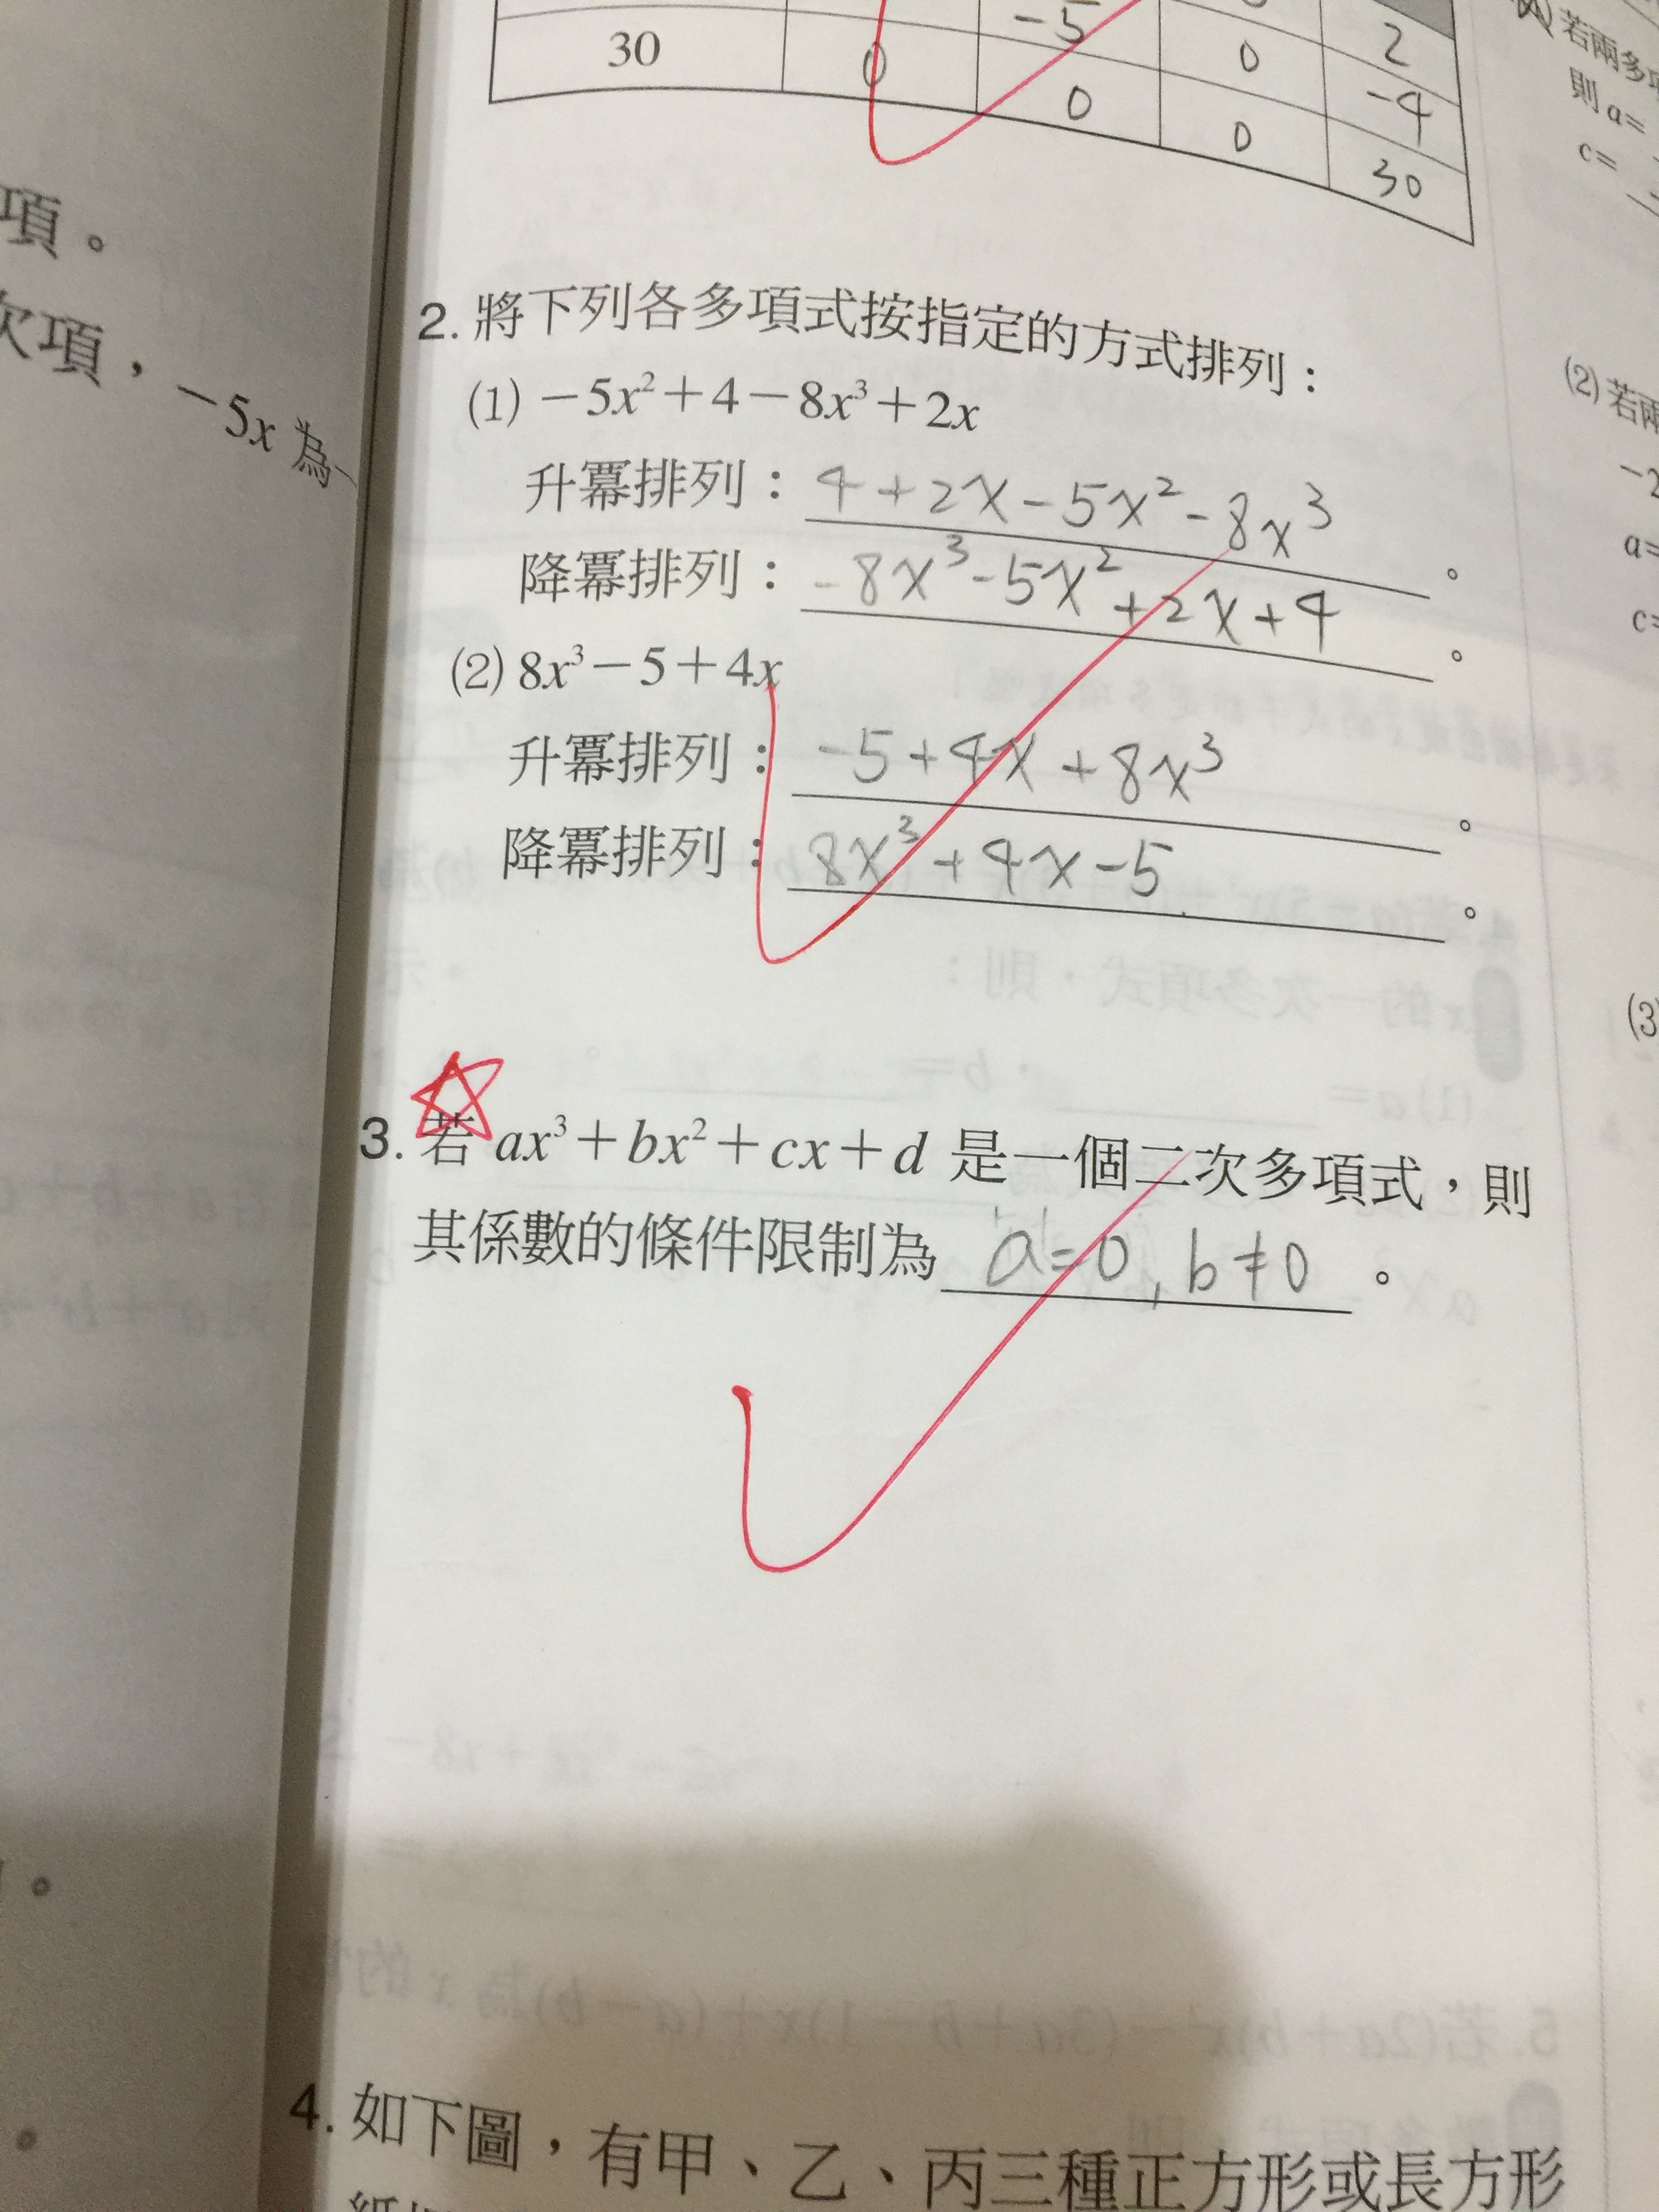 項。
次項，-5x 為一
-5 2
30 0 0 -4
0 0 30
2. 將下列各多項式按指定的方式排列：
(1) -5x²+4-8x³+2x
升冪排列：4+2x-5x²-8x³。
降冪排列：-8x³-5x²+2x+4。
(2) 8x³-5+4x
升冪排列：-5+4x+8x³。
降冪排列：8x³+4x-5。
3. 若 ax³+bx²+cx+d 是一個二次多項式，則
其係數的條件限制為 a=0, b≠0 。
4. 如下圖，有甲、乙、丙三種正方形或長方形
若兩多項
則 a=
c=
(2) 若兩
-2
a=
c=
(3)